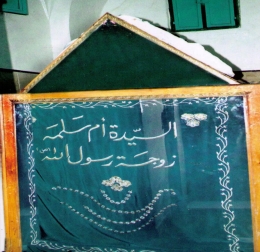 السيّدة أم سلمة
زوجة رسول الله